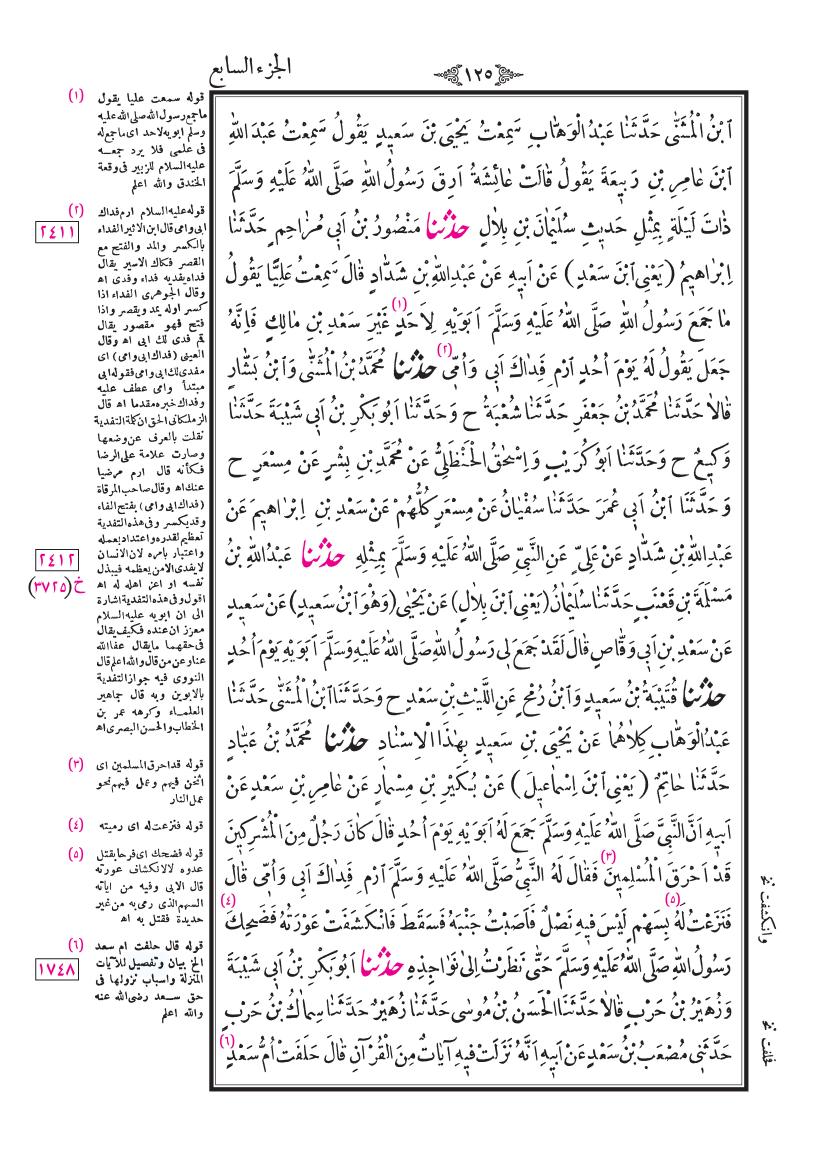 ١٢٥
الجزء السابع
ابْنُ الْمُثَنّٰى حَدَّثَنَا عَبْدُ الْوَهَّابِ سَمِعْتُ يَحْيَى بْنَ سَعِيدٍ يَقُولُ سَمِعْتُ عَبْدَ اللّٰهِ
ابْنَ عَامِرِ بْنِ رَبِيعَةَ يَقُولُ قَالَتْ عَائِشَةُ اَرِقَ رَسُولُ اللّٰهِ صَلَّى اللّٰهُ عَلَيْهِ وَسَلَّمَ
ذَاتَ لَيْلَةٍ بِمِثْلِ حَدِيثِ سُلَيْمَانَ بْنِ بِلَالٍ حَدَّثَنَا مَنْصُورُ بْنُ اَبِي مُزَاحِمٍ حَدَّثَنَا
اِبْرَاهِيمُ (يَعْنِي ابْنَ سَعْدٍ) عَنْ اَبِيهِ عَنْ عَبْدِ اللّٰهِ بْنِ شَدَّادٍ قَالَ سَمِعْتُ عَلِيًّا يَقُولُ
مَا جَمَعَ رَسُولُ اللّٰهِ صَلَّى اللّٰهُ عَلَيْهِ وَسَلَّمَ اَبَوَيْهِ لِاَحَدٍ (١) غَيْرَ سَعْدِ بْنِ مَالِكٍ فَاِنَّهُ
جَعَلَ يَقُولُ لَهُ يَوْمَ اُحُدٍ ارْمِ فِدَاكَ اَبِي وَاُمِّي (٢) حَدَّثَنَا مُحَمَّدُ بْنُ الْمُثَنّٰى وَابْنُ بَشَّارٍ
قَالَا حَدَّثَنَا مُحَمَّدُ بْنُ جَعْفَرٍ حَدَّثَنَا شُعْبَةُ ح وَحَدَّثَنَا اَبُو بَكْرِ بْنُ اَبِي شَيْبَةَ حَدَّثَنَا
وَكِيعٌ ح وَحَدَّثَنَا اَبُو كُرَيْبٍ وَاِسْحٰقُ الْحَنْظَلِيُّ عَنْ مُحَمَّدِ بْنِ بِشْرٍ عَنْ مِسْعَرٍ ح
وَحَدَّثَنَا ابْنُ اَبِي عُمَرَ حَدَّثَنَا سُفْيَانُ عَنْ مِسْعَرٍ كُلُّهُمْ عَنْ سَعْدِ بْنِ اِبْرَاهِيمَ عَنْ
عَبْدِ اللّٰهِ بْنِ شَدَّادٍ عَنْ عَلِيٍّ عَنِ النَّبِيِّ صَلَّى اللّٰهُ عَلَيْهِ وَسَلَّمَ بِمِثْلِهِ حَدَّثَنَا عَبْدُ اللّٰهِ بْنُ
مَسْلَمَةَ بْنِ قَعْنَبٍ حَدَّثَنَا سُلَيْمَانُ (يَعْنِي ابْنَ بِلَالٍ) عَنْ يَحْيٰى (وَهُوَ ابْنُ سَعِيدٍ) عَنْ سَعِيدٍ
عَنْ سَعْدِ بْنِ اَبِي وَقَّاصٍ قَالَ لَقَدْ جَمَعَ لِي رَسُولُ اللّٰهِ صَلَّى اللّٰهُ عَلَيْهِ وَسَلَّمَ اَبَوَيْهِ يَوْمَ اُحُدٍ
حَدَّثَنَا قُتَيْبَةُ بْنُ سَعِيدٍ وَابْنُ رُمْحٍ عَنِ اللَّيْثِ بْنِ سَعْدٍ ح وَحَدَّثَنَا ابْنُ الْمُثَنّٰى حَدَّثَنَا
عَبْدُ الْوَهَّابِ كِلَاهُمَا عَنْ يَحْيَى بْنِ سَعِيدٍ بِهٰذَا الْاِسْنَادِ حَدَّثَنَا مُحَمَّدُ بْنُ عَبَّادٍ
حَدَّثَنَا حَاتِمٌ (يَعْنِي ابْنَ اِسْمَاعِيلَ) عَنْ بُكَيْرِ بْنِ مِسْمَارٍ عَنْ عَامِرِ بْنِ سَعْدٍ عَنْ
اَبِيهِ اَنَّ النَّبِيَّ صَلَّى اللّٰهُ عَلَيْهِ وَسَلَّمَ جَمَعَ لَهُ اَبَوَيْهِ يَوْمَ اُحُدٍ قَالَ كَانَ رَجُلٌ مِنَ الْمُشْرِكِينَ
قَدْ اَحْرَقَ الْمُسْلِمِينَ (٣) فَقَالَ لَهُ النَّبِيُّ صَلَّى اللّٰهُ عَلَيْهِ وَسَلَّمَ ارْمِ فِدَاكَ اَبِي وَاُمِّي قَالَ
فَنَزَعْتُ لَهُ (٤) بِسَهْمٍ لَيْسَ فِيهِ نَصْلٌ فَاَصَبْتُ جَنْبَهُ فَسَقَطَ فَانْكَشَفَتْ عَوْرَتُهُ فَضَحِكَ (٥)
رَسُولُ اللّٰهِ صَلَّى اللّٰهُ عَلَيْهِ وَسَلَّمَ حَتّٰى نَظَرْتُ اِلٰى نَوَاجِذِهِ حَدَّثَنَا اَبُو بَكْرِ بْنُ اَبِي شَيْبَةَ
وَزُهَيْرُ بْنُ حَرْبٍ قَالَا حَدَّثَنَا الْحَسَنُ بْنُ مُوسٰى حَدَّثَنَا زُهَيْرٌ حَدَّثَنَا سِمَاكُ بْنُ حَرْبٍ
حَدَّثَنِي مُصْعَبُ بْنُ سَعْدٍ عَنْ اَبِيهِ اَنَّهُ نَزَلَتْ فِيهِ آيَاتٌ مِنَ الْقُرْآنِ قَالَ حَلَفَتْ اُمُّ سَعْدٍ (٦)
(١) قوله سمعت عليا يقول
ماجمع رسول الله صلى الله عليه
وسلم ابويه لاحد اى ماجمع له
فى علمى فلا يرد جمعه
عليه السلام للزبير فى وقعة
الخندق والله اعلم
(٢) قوله عليه السلام ارم فداك
ابى وامى قال ابن الاثير الفداء
بالكسر والمد والفتح مع
القصر فكاك الاسير يقال
فداه يفديه فداء وفدى اه
وقال الجوهرى الفداء اذا
كسر اوله يمد ويقصر واذا
فتح فهو مقصور يقال
قم فدى لك ابى اه وقال
العينى (فداك ابى وامى) اى
مفدى لك ابى وامى فقوله ابى
مبتدأ وامى عطف عليه
وفداك خبره مقدما اه قال
الزملكانى الحق ان كلمة التفدية
نقلت بالعرف عن وضعها
وصارت علامة على الرضا
فكأنه قال ارم مرضيا
عنك اه وقال صاحب المرقاة
(فداك ابى وامى) بفتح الفاء
وقديكسر وفى هذه التفدية
تعظيم لقدره واعتداد بعمله
واعتبار بامره لان الانسان
لايفدى الا من يعظمه فيبذل
نفسه او اعز اهله له اه
اقول وفى هذه التفدية اشارة
الى ان ابويه عليه السلام
معزز ان عنده فكيف يقال
فى حقهما مايقال عفا الله
عنا وعن من قال والله اعلم قال
النووى فيه جواز التفدية
بالابوين وبه قال جماهير
العلماء وكرهه عمر بن
الخطاب والحسن البصرى اه
(٣) قوله قد احرق المسلمين اى
اثخن فيهم وعمل فيهم نحو
عمل النار
(٤) قوله فنزعت له اى رميته
(٥) قوله فضحك اى فرحا بقتل
عدوه لا لانكشاف عورته
قال الابى وفيه من اياته
السهم الذى رمى به من غير
حديدة فقتل به اه
(٦) قوله قال حلفت ام سعد
الخ بيان وتفصيل للآيات
المنزلة واسباب نزولها فى
حق سعد رضى الله عنه
والله اعلم
٢٤١١
٢٤١٢
خ (٣٧٢٥)
١٧٤٨
وانكشفت نخ
خلفت نخ